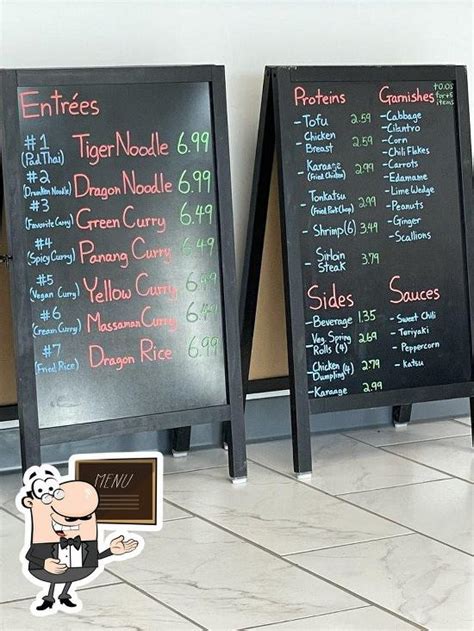 Entrées
#1
(Pad Thai)
Tiger Noodle 6.99
#2
(Drunken Noodle)
Dragon Noodle 6.99
#3
(Favorite Curry)
Green Curry 6.49
#4
(Spicy Curry)
Panang Curry 6.49
#5
(Vegan Curry)
Yellow Curry 6.49
#6
(Cream Curry)
Massaman Curry
#7
(Fried Rice)
Dragon Rice 6.99
Proteins
- Tofu 2.59
- Chicken
Breast 2.59
- Karaage
(Fried Chicken) 2.99
- Tonkatsu
(Fried Pork Chop) 2.99
- Shrimp(6) 3.49
- Sirloin
Steak 3.79
Sides
- Beverage 1.35
- Veg. Spring
Rolls (4) 2.69
- Chicken
Dumpling(4) 2.79
- Karaage 2.99
Garnishes
items
- Cabbage
- Cilantro
- Corn
- Chili Flakes
- Carrots
- Edamame
- Lime Wedge
- Peanuts
- Ginger
- Scallions
Sauces
- Sweet Chili
- Teriyaki
- Peppercorn
- Katsu
MENU